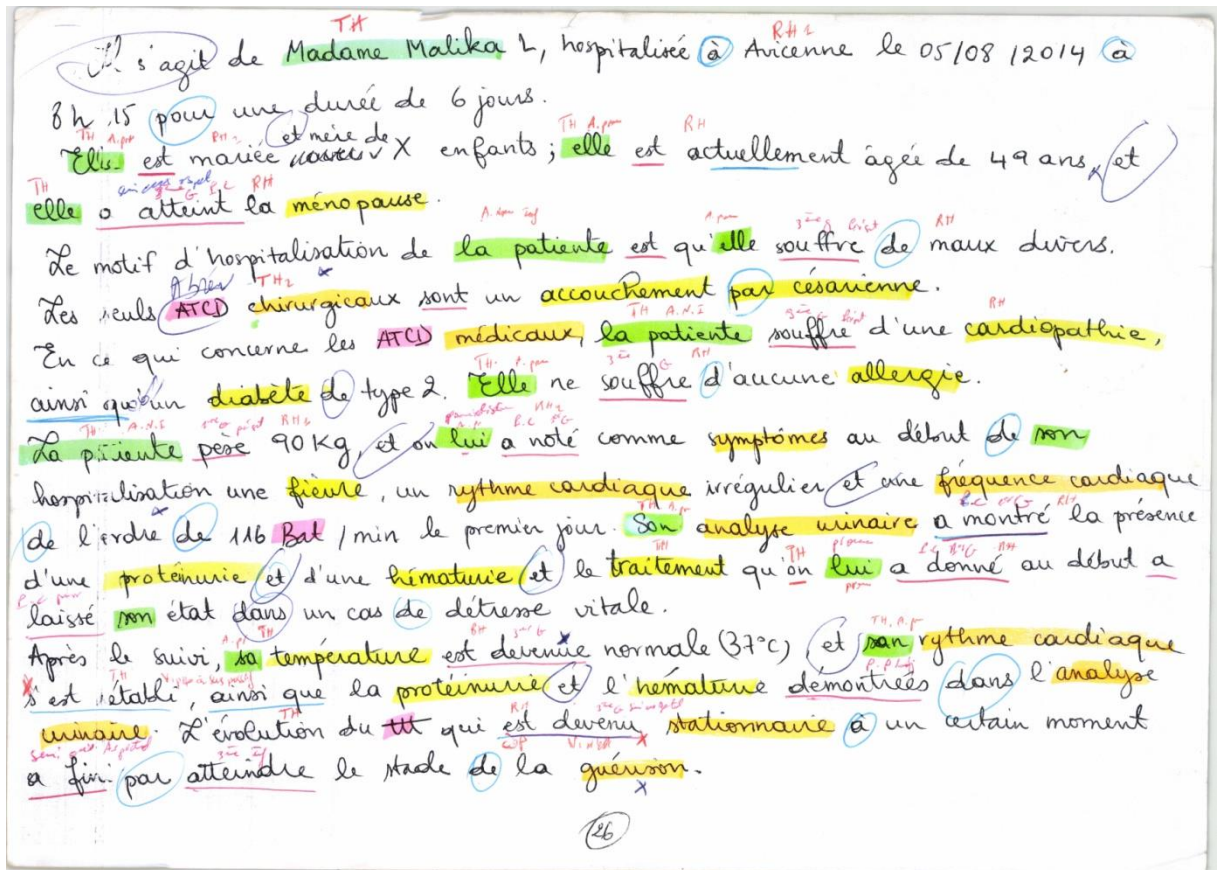 TH RH1
Il s'agit de Madame Malika L, hospitalisée à Avicenne le 05/08/2014 à
8h 15 pour une durée de 6 jours.
et mère de TH A.pro RH
Elle est mariée X enfants ; elle est actuellement agée de 49 ans, et
TH RH
elle a atteint la ménopause.
Le motif d'hospitalisation de la patiente est qu'elle souffre de maux divers.
TH2
Les seuls ATCD chirurgicaux sont un accouchement par césarienne.
TH A.N.I RH
En ce qui concerne les ATCD médicaux, la patiente souffre d'une cardiopathie,
ainsi qu'un diabète de type 2. Elle ne souffre d'aucune allergie.
La patiente pèse 90Kg, et on lui a noté comme symptômes au début de son
hospitalisation une fièvre, un rythme cardiaque irrégulier et une fréquence cardiaque
de l'ordre de 116 Bat/min le premier jour. Son analyse urinaire a montré la présence
d'une protéinurie et d'une hématurie et le traitement qu'on lui a donné au début a
laissé son état dans un cas de détresse vitale.
Après le suivi, sa température est devenue normale (37°c) et son rythme cardiaque
s'est établi, ainsi que la protéinurie et l'hématurie démontrées dans l'analyse
urinaire. L'évolution du ttt qui est devenu stationnaire à un certain moment
a fini par atteindre le stade de la guérison.
26